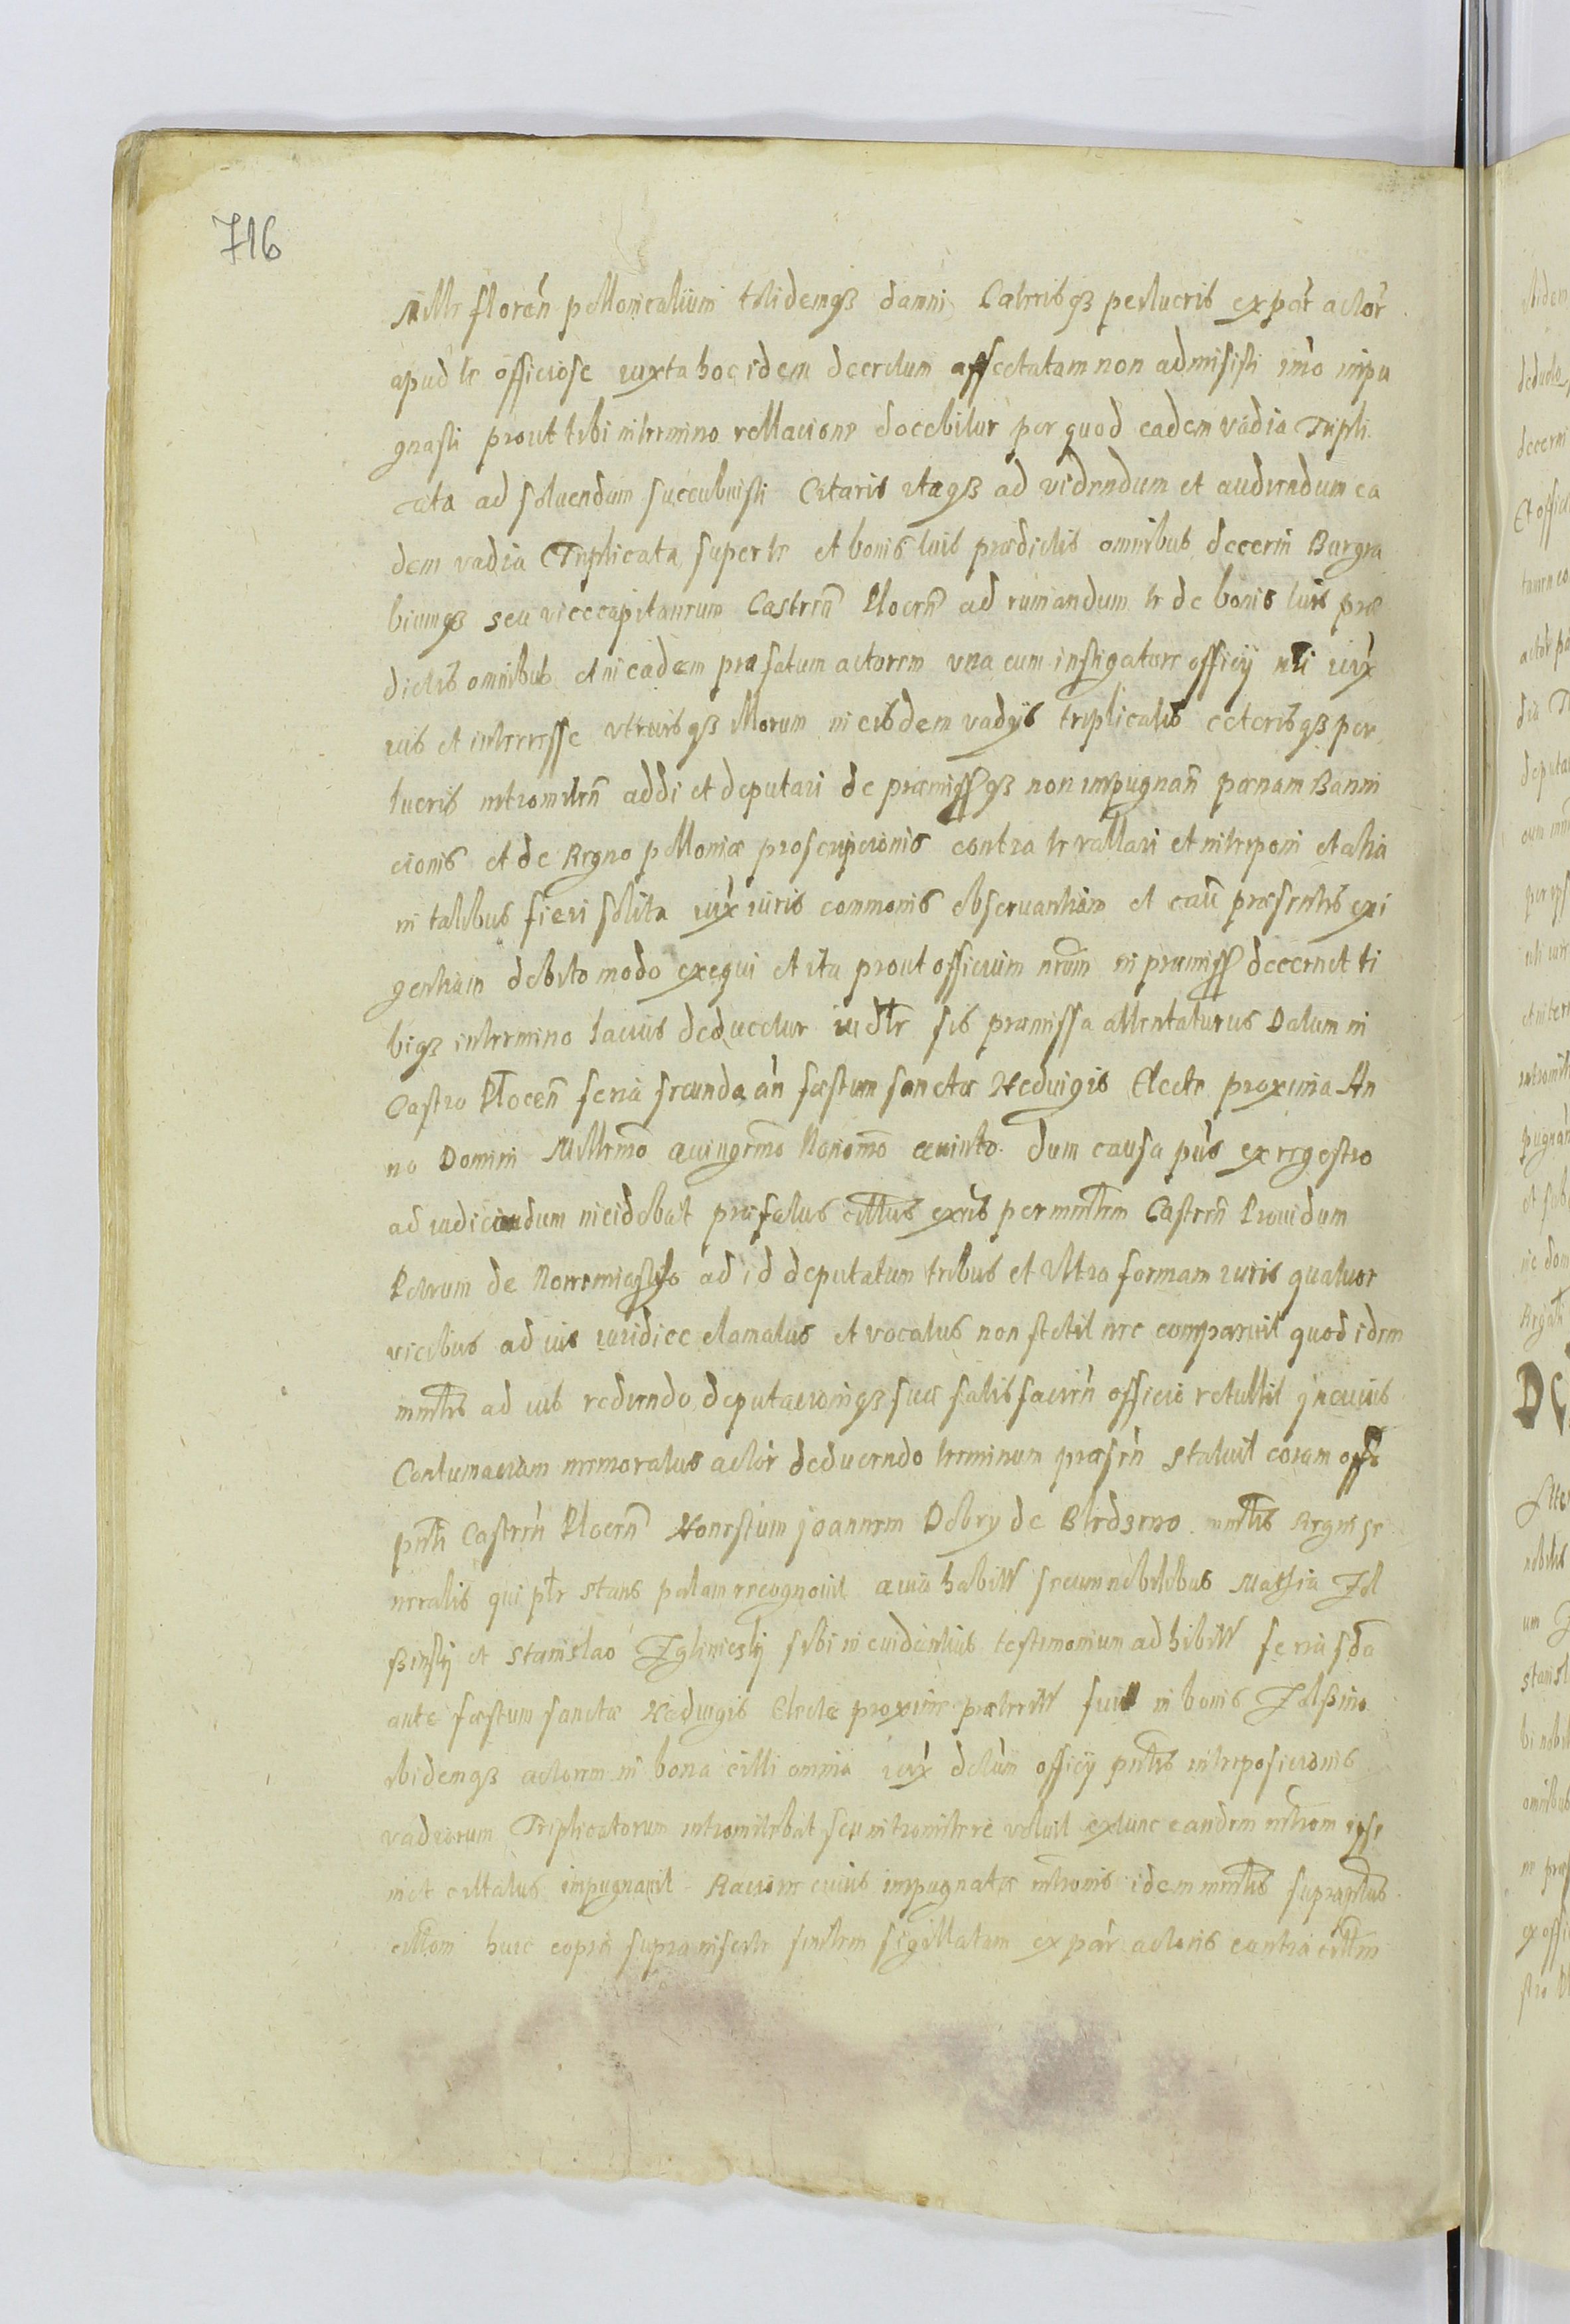 716
Mille floren pollonicalium totidemqз damni Cæterisqз perlucris ex par actor
apud te officiose iuxta hoc idem decretum affectatam non admisisti imo impu
gnasti prout tibi in termino rellacione docebitur per quod eadem vadia Tripli
cata ad soluendum succubuisti Citaris itaqз ad videndum et audiendum ea
dem vadia Triplicata super te et bonis tuis prædictis omnibus decerni Burgra
biumqз seu vicecapitaneum Castren Plocen ad ruinandum te de bonis tuis præ
dictis omnibus et in eadem præfatum actorem vna cum instigatore officij nri iux
ius et interesse vtriusqз illorum in eisdem vadijs triplicatis ceterisqз per
lucris intromitten addi et deputari de præmissqз non impugnan pœnam Banni
cionis et de Regno polloniæ proscripcionis contra te vallari et interponi et alia
in talibus fieri solita iux iuris communis obseruantiam et cau præsentis exi
gentiam debito modo exequi et ita prout officium nrum in præmiss decernet ti
biqз in termino lacius deducetur iudlr sis præmissa attentaturus Datum in
Castro Plocen feria secunda an fæstum sanctæ Heduigis Electe proxima An
no Domini Millrmo quingrmo Nonomo quinto. Dum causa pns ex regestro
ad iudicandum incidebat præfatus cittus exns per mnlrm Castren Prouidum
Petrum de ad id deputatum tribus et vltra formam iuris quatuor
vicibus ad ius iuridice clamatus et vocatus non stetit nec comparuit quod idem
mnlris ad ius redeundo deputacioniqз suæ satisfacien officio retullit in cuius
Contumaciam memoratus actor deducendo terminum præsen statuit coram offo
pnti Castren Plocen Honestum Joannem Dobry de mnlris Regni ge
neralis qui plr stans palam recognouit quia habitt secum nobilibus Mathia Zol
ßinskij et Stanislao sibi in euidentius testimonium adhibitt feria sda
ante fæstum sanctæ Hedvigis Electæ proxime præteritt fuit in bonis
ibidemqз actorem in bona citti omnia iux dctum officij pntis interposicionis
vadiorum Triplicatorum intromitebat seu intromittere voluit extunc eandem intrôm ipse
met cittatus impugnauit Racione cuius impugnatæ intromis idem mnlris suprascriptus
cittom huic copiæ supra inserte simlrm sigillatam ex par actoris contra cittm